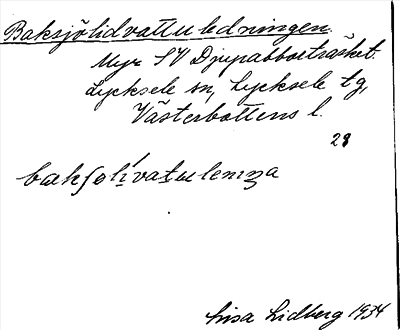 Baksjölidvattuledningen.
Myr SV Djupabborrträsket.
Lycksele sn, Lycksele tg,
Västerbottens l.
28
Lisa Lidberg 1934